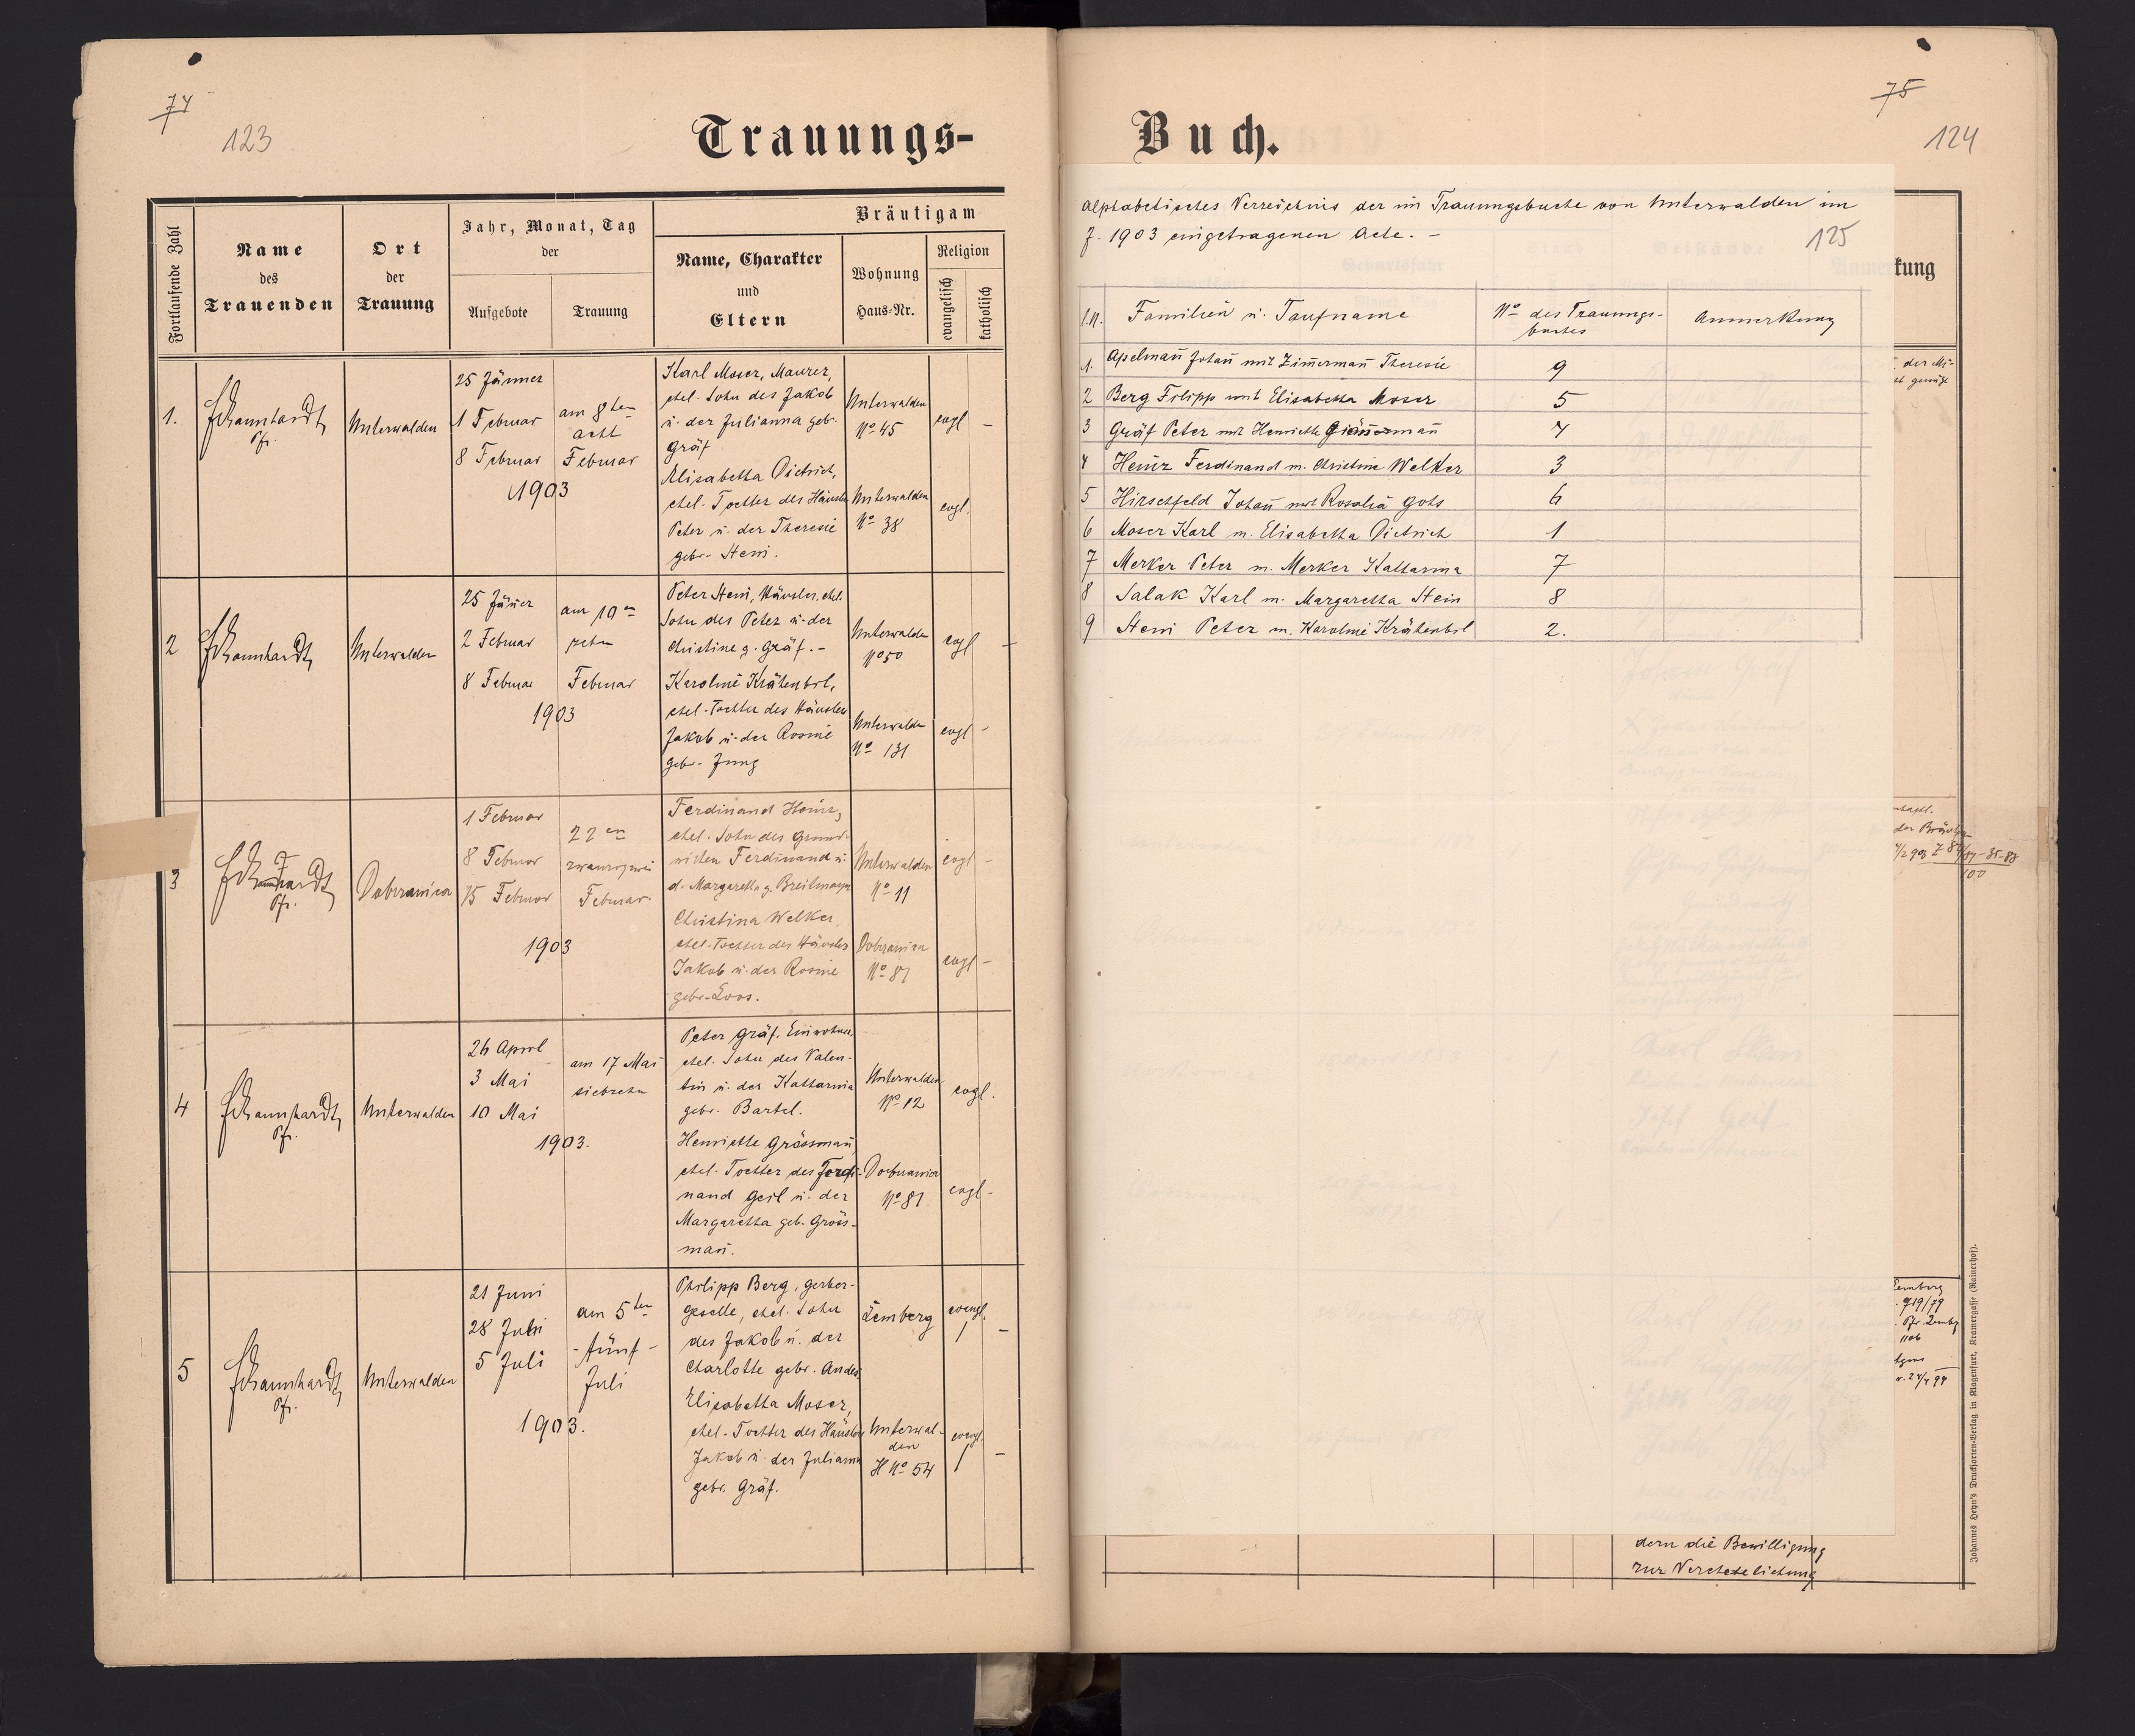 74
123
Trauungs-
Fortlaufende Zahl
Name
des
Trauenden
Ort
der
Trauung
Jahr, Monat, Tag
der
Aufgebote
Trauung
Bräutigam
Name, Charakter
und
Eltern
Wohnung
Haus-Nr.
Religion
evangelisch
katholisch
1.
Pfr.
Unterwalden
25 Jänner
1 Februar
8 Februar
am 8ten
acht
Februar
1903
Karl Moser, Maurer,
ehel. Sohn des Jakob
u. der Julianna geb.
Gräf
Unterwalden
No 45
evgl –
Elisabetha Dietrich,
ehel. Tochter des Häusler
Peter u. der Theresie
geb. Stein.
Unterwalden
No 38
evgl.
2
Unterwalden
25 Jäner
2 Februar
8 Februar
am 10en
zehn
Februar
1903
Peter Stein, Häusler, ehel.
Sohn des Peter u. der
Christine g. Gräf. –
Unterwalden
No 50
evgl –
Karoline Krähenbil,
ehel. Tochter des Häusler
Jakob u. der Rosine
geb. Jung
Unterwalden
No 131
evgl –
3
Pfr.
Dobrzanica
1 Februar
8 Februar
15 Februar
22en
zwanzigzwei
Februar.
1903
Ferdinand Heinz,
ehel. Sohn des Grund-
wirten Ferdinand u.
d. Margaretha g. Breitmayer
Unterwalden
No 11
evgl –
Christina Welker,
ehel. Tochter des Häusler
Jakob u. der Rosine
geb. Loos.
Dobrzanica
No 87
evgl –
4
Pfr.
Unterwalden
26 April
3 Mai
10 Mai
am 17 Mai
siebzehn
1903.
Peter Gräf, Einwohner,
ehel. Sohn des Valen-
tin u. der Katharina
geb. Bartel.
Unterwalden
No 12
evgl.
Henriette Grössmañ
ehel. Tochter des Ferdi-
nand Geil u. der
Margaretha geb. Gröss-
mañ.
Dobrzanica
No 81
evgl –
5
Pfr.
Unterwalden
21 Juni
28 Juni
5 Juli
am 5ten
– fünf –
Juli
1903.
Philipp Berg, Gerber-
geselle, ehel. Sohn
des Jakob u. der
Charlotte geb. Andes
Lemberg
evengl.
1 –
Elisabetha Moser,
ehel. Tochter des Häusler
Jakob u. der Julianna
geb. Gräf.
Unterwal-
den
H No 54
evengl.
1 –
75
124
Buch.
Alphabetisches Verzeichnis der im Trauungsbuche von Unterwalden im
J. 1903 eingetragenen Acte. –
125
l.N. Familien u. Taufname No des Trauungs-
buches Anmerkung
1. Apelmañ Johañ mit Zim̄ermañ Theresie 9
2 Berg Filipp mit Elisabetha Moser 5
3 Gräf Peter mit Henriette Grössmañ 4
4 Heinz Ferdinand m. Christine Welker 3
5 Hirschfeld Johañ mit Rosalia Gots 6
6 Moser Karl m. Elisabetha Dietrich 1
7 Merker Peter m. Merker Katharina 7
8 Salak Karl m. Margaretha Stein 8
9 Stein Peter m. Karoline Krähenbil 2.
kung
der Bräut
100
Lemberg
719/79
Pfr. Lembg
1106
v. 24/4 94
dern die Bewilligung
zur Verehelichung
Johannes Heyn's Drucksorten-Verlag in Klagenfurt, Kramergasse (Rainerhof).